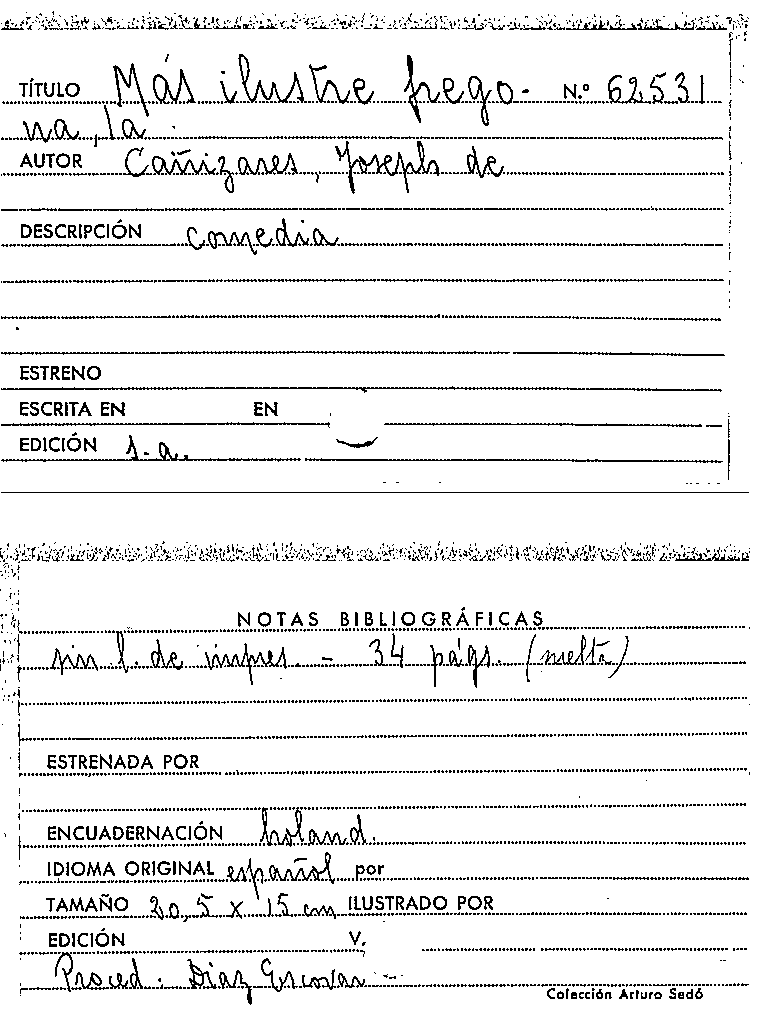 TÍTULO Más ilustre frego- N.º 62531
na, la
AUTOR Cañizares, Joseph de
DESCRIPCIÓN comedia
ESTRENO
ESCRITA EN EN
EDICIÓN s.a.
NOTAS BIBLIOGRÁFICAS
sin l. de impres. - 34 págs. (suelta)
ESTRENADA POR
ENCUADERNACIÓN holand.
IDIOMA ORIGINAL español por
TAMAÑO 20,5 x 15 cm ILUSTRADO POR
EDICIÓN V.
Proced. Diaz Escovar -
Colección Arturo Sedó